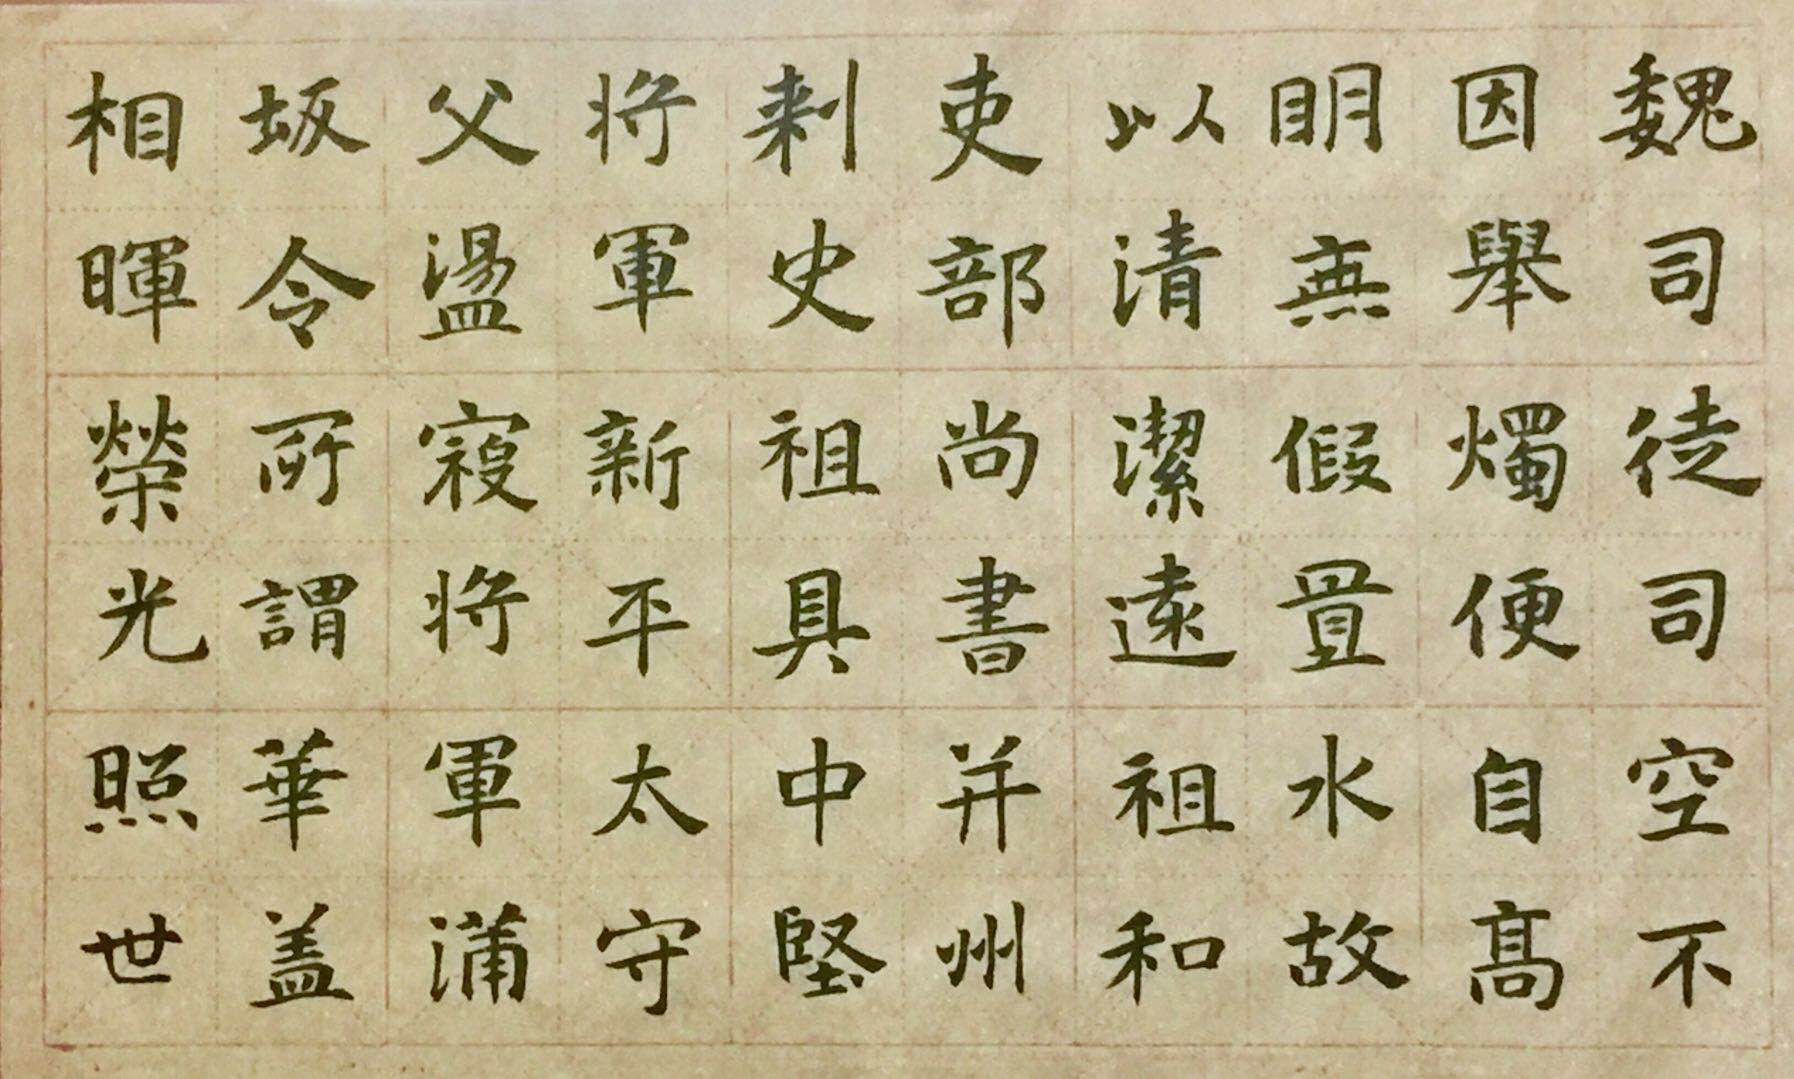 魏司徒司空不
因舉燭便自高
明無假置水故
以清潔遠祖和
吏部尚書并州
刺史祖具中堅
將軍新平太守
父盪寇將軍蒲
坂令所謂華蓋
相暉榮光照世